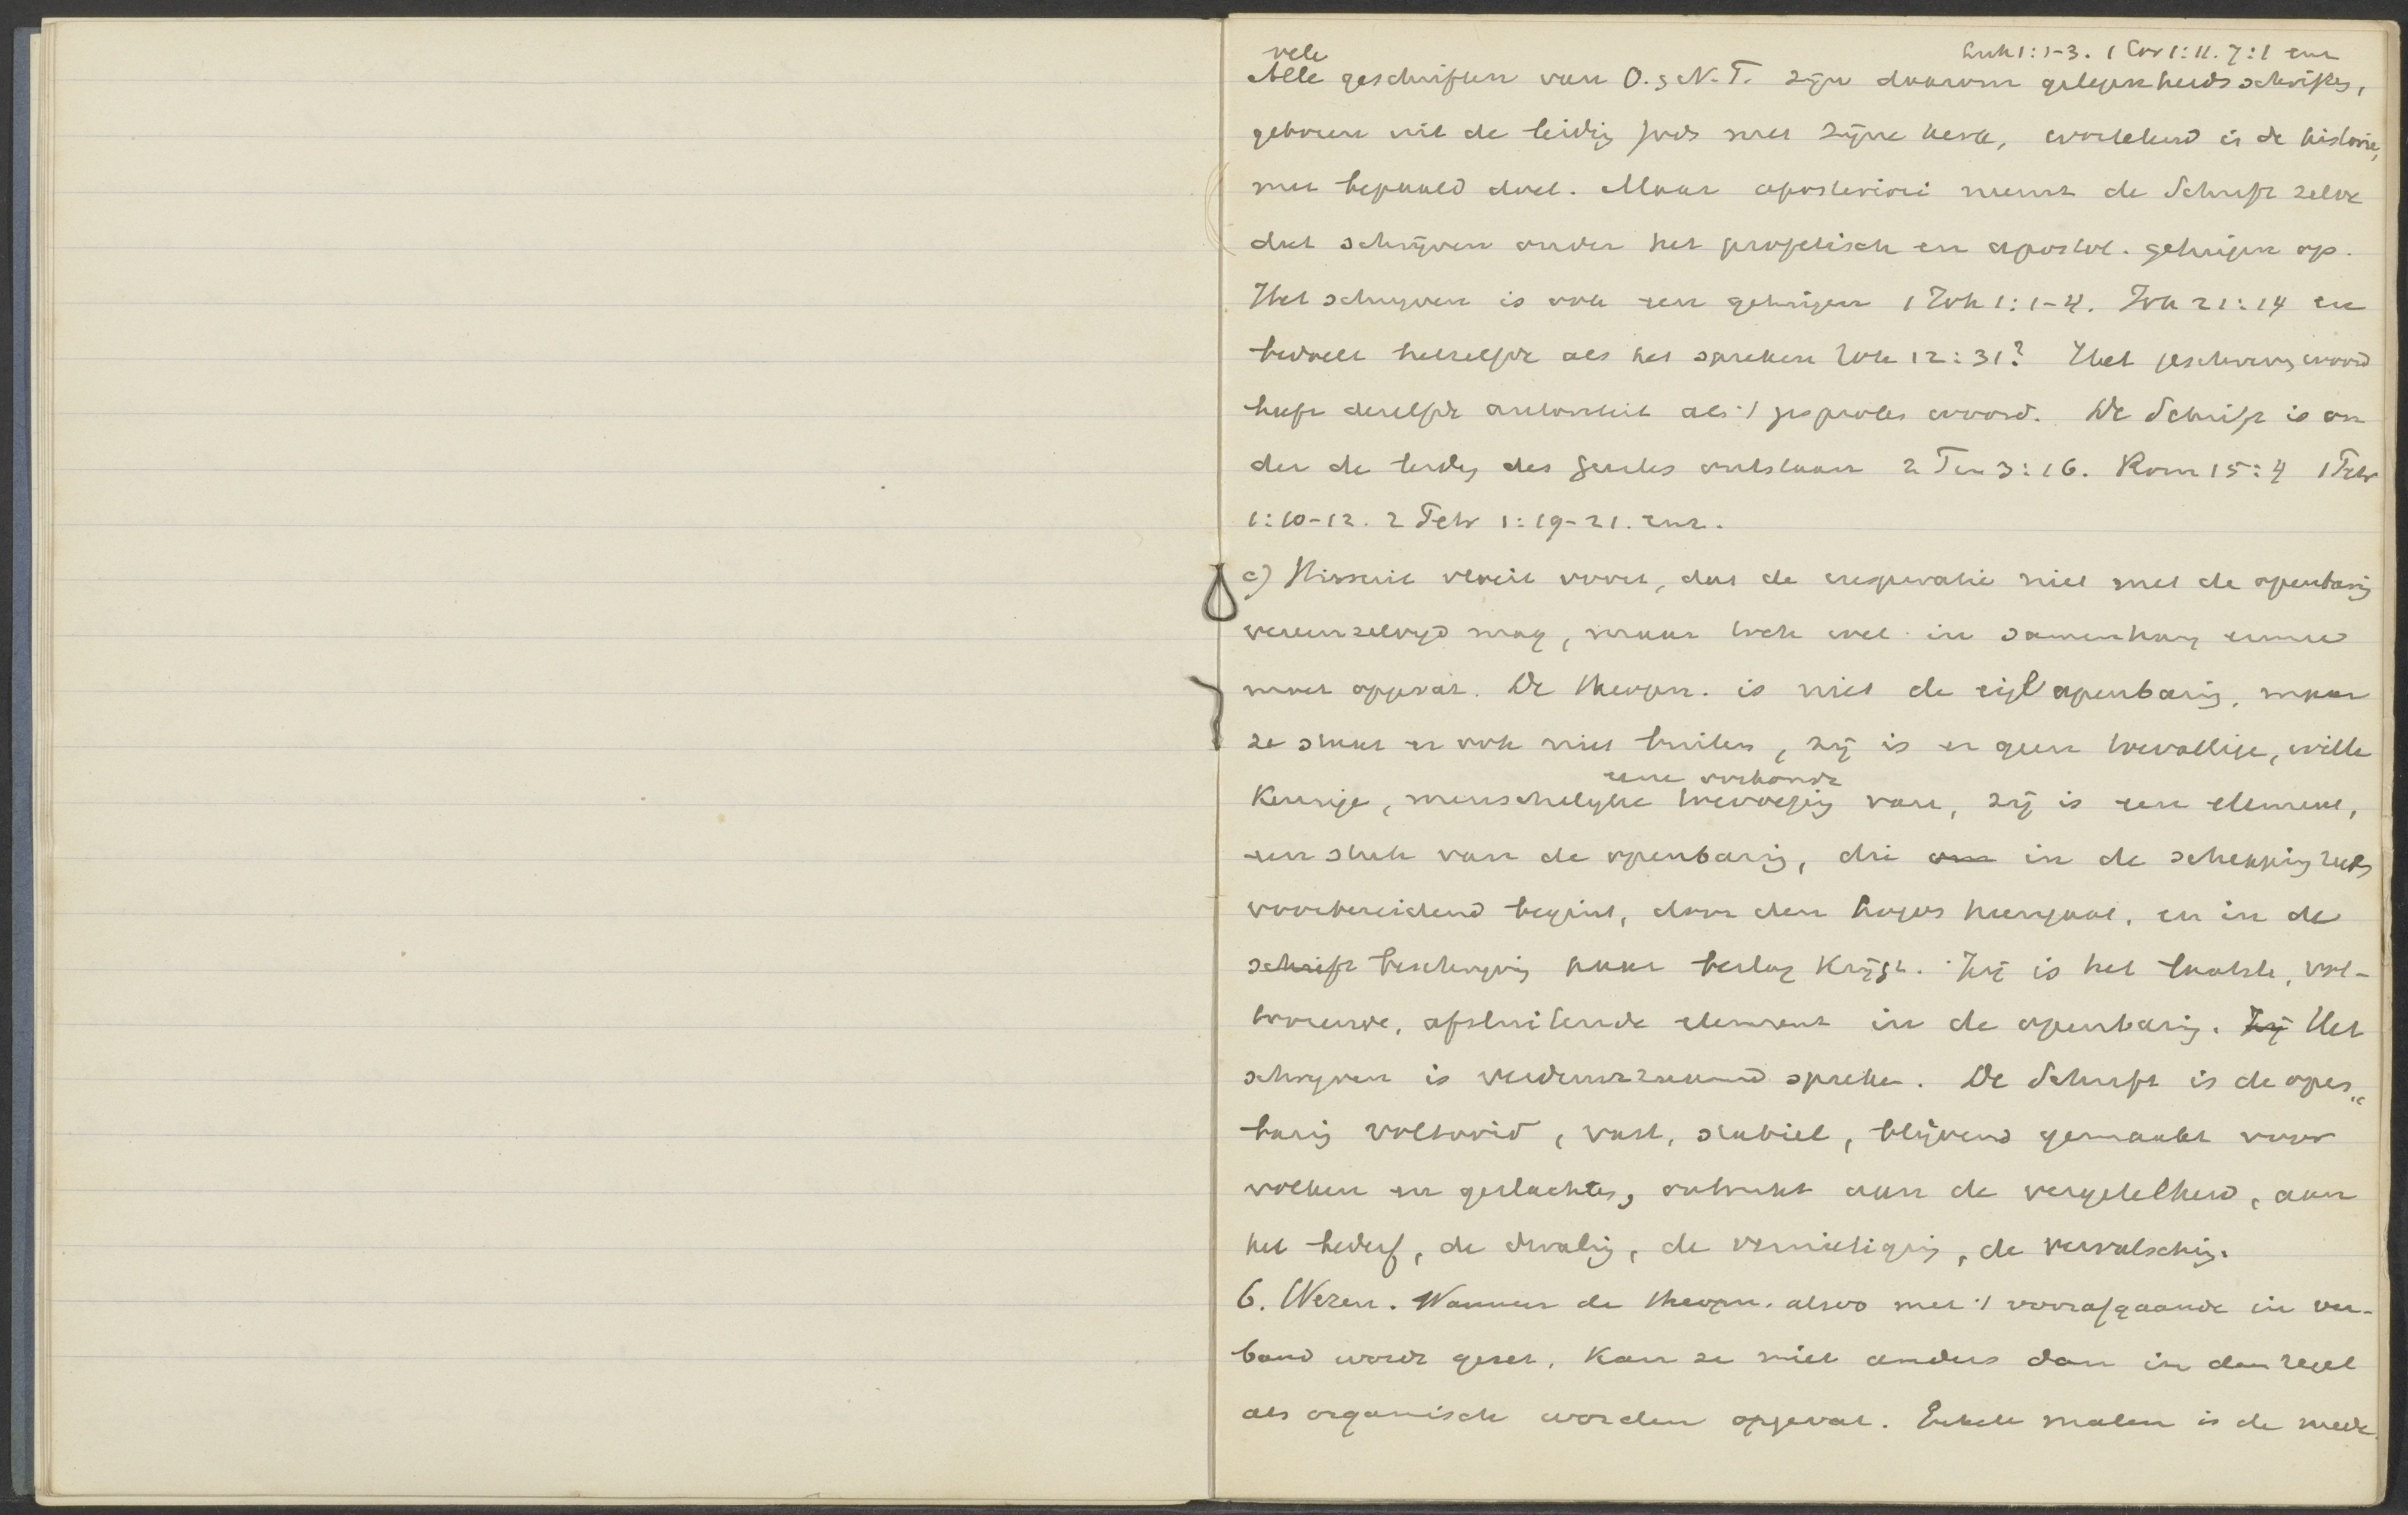 vele Luk 1:1-3. 1 Cor 1:11. 7:1 enz
Alle geschriften van O. & N. T. zijn daarom gelegenheidsschriften,
geboren uit de leiding Gods met zijne kerk, wortelend in de historie,
met bepaald doel. Maar aposteriori neemt de Schrift zelve
dat schrijven onder het profetisch en apostol. getuigen op.
Het schrijven is ook een getuigen 1 Joh 1:1-4. Joh 21:24 en
bedoelt hetzelfde als het spreken Joh 12:31? Het geschreven woord
heeft dezelfde autoriteit als 't gesproken woord. De Schrift is on
der de leiding des Geestes ontstaan 2 Tim 3:16. Rom 15:4 1 Petr
1:10-12. 2 Petr 1:19-21. enz.
c) Hieruit vloeit voort, dat de inspiratie niet met de openbaring
vereenzelvigd mag, maar toch wel in samenhang ermee
moet opgevat. De theopn. is niet de eigl openbaring, maar
ze staat er ook niet buiten, zij is er geen toevallige, wille
keurige, menschelijke toevoeging van, zij is een element,
een stuk van de openbaring, die om in de schepping reeds
voorbereidend begint, door den Logos heengaat, en in de
schrift beschrijving haar beslag krijgt. Zij is het laatste, vol-
tooiende, afsluitende element in de openbaring. Zij Het
schrijven is verduurzaamd spreken. De Schrift is de open„
baring voltooid, vast, stabiel, blijvend gemaakt voor
volken en geslachten, ontrukt aan de vergetelheid, aan
het bederf, de dwaling, de vernietiging, de vervalsching.
6. Wezen. Wanneer de theopn. alzoo met 't voorafgaande in ver-
band wordt gezet, kan ze niet anders dan in den regel
als organisch worden opgevat. Enkele malen is de mede